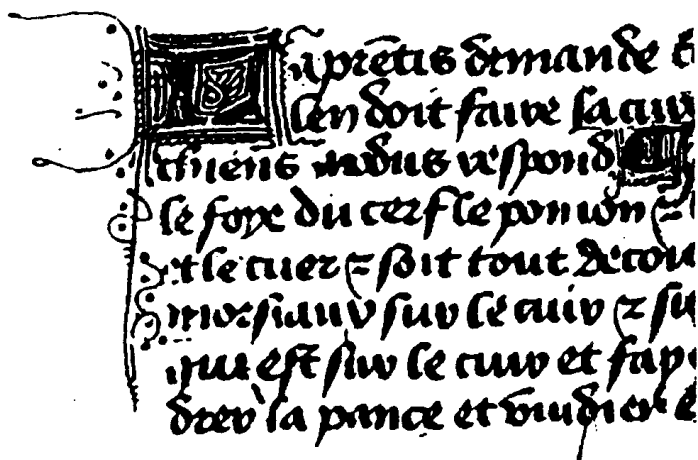 aprētis demande c
len doit faire la cuir
chiens modus respond
le foye du cerf le pomon ⁊
et le cuer ⁊ soit tout decou
morsiaux sur le cuir ⁊ su
qui est sur le cuir et fay
drer la pance et vuidier e